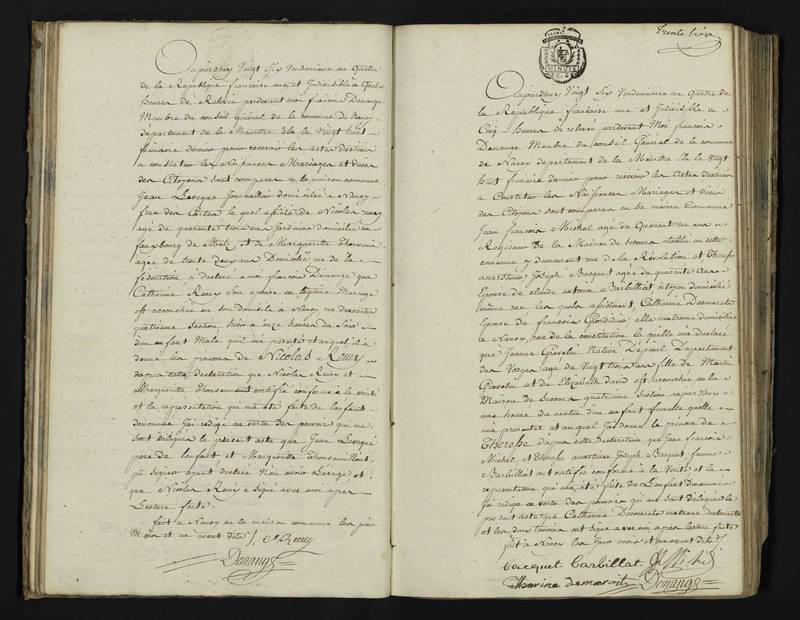 Aujourdhuy Vingt Six Vendemiaire an Quatre
de la Republique francaise une et Indivisible à Quatre
heures de Relevée pardevant moi francois Demange
Membre du conseil général de la commune de Nancy
departement de la Meurthe élu le Vingt huit
frimaire dernier pour recevoir les actes destinés
a constater les Naissances Mariages et décès
des Citoyens sont comparus en la maison commune
Jean Levêque Journallier domicilié à Nancy
rue des Carmes le quel assisté de Nicolas Remy
agé de quarante trois ans Jardinier domicilié au
fauxbourg de et de Margueritte Thouvenin
agée de trente deux ans Domiciliée rue de la
fédération a déclaré a moi francois Demange que
Catherine Remy Son epouse en légitime Mariage
est accouchée en son domicile à Nancy rue
quatrieme Section hier a onze heures du Soir
dun enfant Male qui ma presenté et auquel il a
donné les prenoms de Nicolas Remy
daprès cette declaration que Nicolas Remy et
Margueritte Thouvenin ont certifié conforme a la verité
et la representation qui ma été faite de lenfant
denommé Jai rédigé en vertu des pouvoirs qui me
sont délégués le present acte que Jean Levêque
pere de lenfant et Margueritte Thouvenin nont
pû signer ayant declaré Non avoir Lusage, et
que Nicolas Remy a Signé avec moi apres
Lecture faite
fait à Nancy en la maison commune les jour
Mois et an avant dits /. Remy
Demange
trente trois
Aujourdhuy Vingt Six Vendemiaire an Quatre de
la Republique francaise une et Indivisible a
Cinq heures de relevée pardevant Moi francois
Demange Membre du conseil Général de la commune
de Nancy departement de la Meurthe élu le Vingt
huit frimaire dernier pour recevoir les actes destinés
a Constater les Naissances Mariages et décès
des Citoyens sont comparus en la maison Commune
Jean francois Michel agé de Quarante un ans
Regisseur de la Maison de Secours etablie en cette
commune y demeurant rue de la Révolution et Therese
Joseph Bacquet agée de quarante
Epouse de claude antoine Barbillat citoyen domicilié
même rue les quels assistoient Catherine Demarets
Epouse de francois matrone domiciliée
a Nancy rue de la constitution la quelle ma déclaré
que Jeanne Gravelin Native D'épinal Departement
des Vosges agée de Vingt trois ans fille de Martin
Gravelin et de Elizabeth david est accouchée en la
Maison de Secours quatrieme Section aujourdhuy a
une heure du matin dun enfant femelle quelle
ma presenté et auquel Jai donné le prenom de
Therese Daprès cette declaration que Jean francois
Michel et Therese Joseph Bacquet femme
Barbillat ont certifiée conforme à la Verité et la
representation qui ma été faite de Lenfant denommé
Jai rédigé en vertu des pouvoirs qui me sont délégués le
présent acte que Catherine Demarets matrone declarante
et les deux témoins ont signé avec moi apres lecture faite
fait à Nancy les Jour mois et an avant dits /.
vacquet barbillat Michel
Catherine demarets Demange